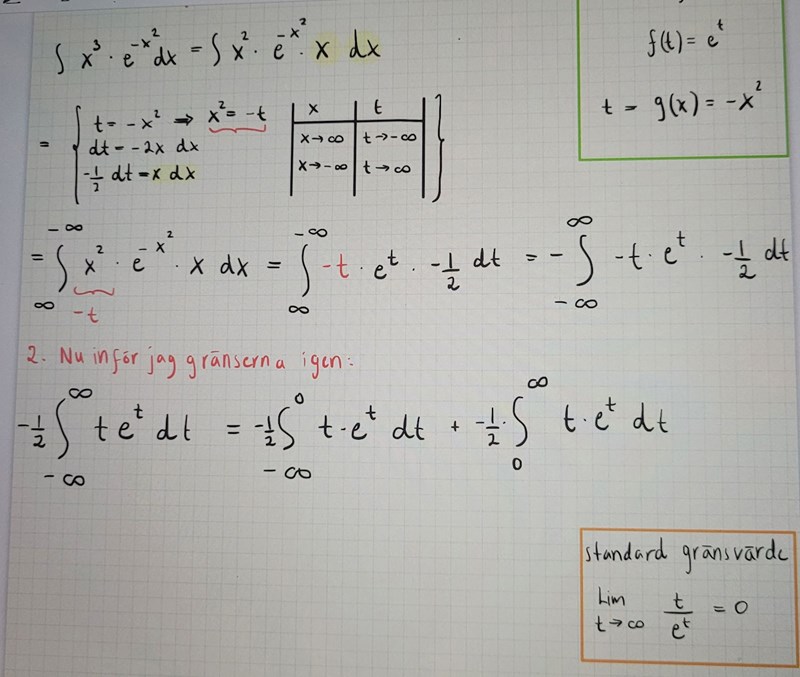 ∫ x³ · e^(-x²) dx = ∫ x² · e^(-x²) · x dx
f(t) = e^t
t = g(x) = -x²
= { t = -x² ⇒ x² = -t
dt = -2x dx
-1/2 dt = x dx
x | t
x→∞ | t→-∞
x→-∞ | t→∞ }
= ∫_∞^(-∞) x² · e^(-x²) · x dx = ∫_∞^(-∞) -t · e^t · -1/2 dt = - ∫_(-∞)^∞ -t · e^t · -1/2 dt
-t
2. Nu inför jag gränserna igen:
-1/2 ∫_(-∞)^∞ t e^t dt = -1/2 ∫_(-∞)^0 t · e^t dt + -1/2 · ∫_0^∞ t · e^t dt
standard gränsvärde
Lim t→∞ t/e^t = 0